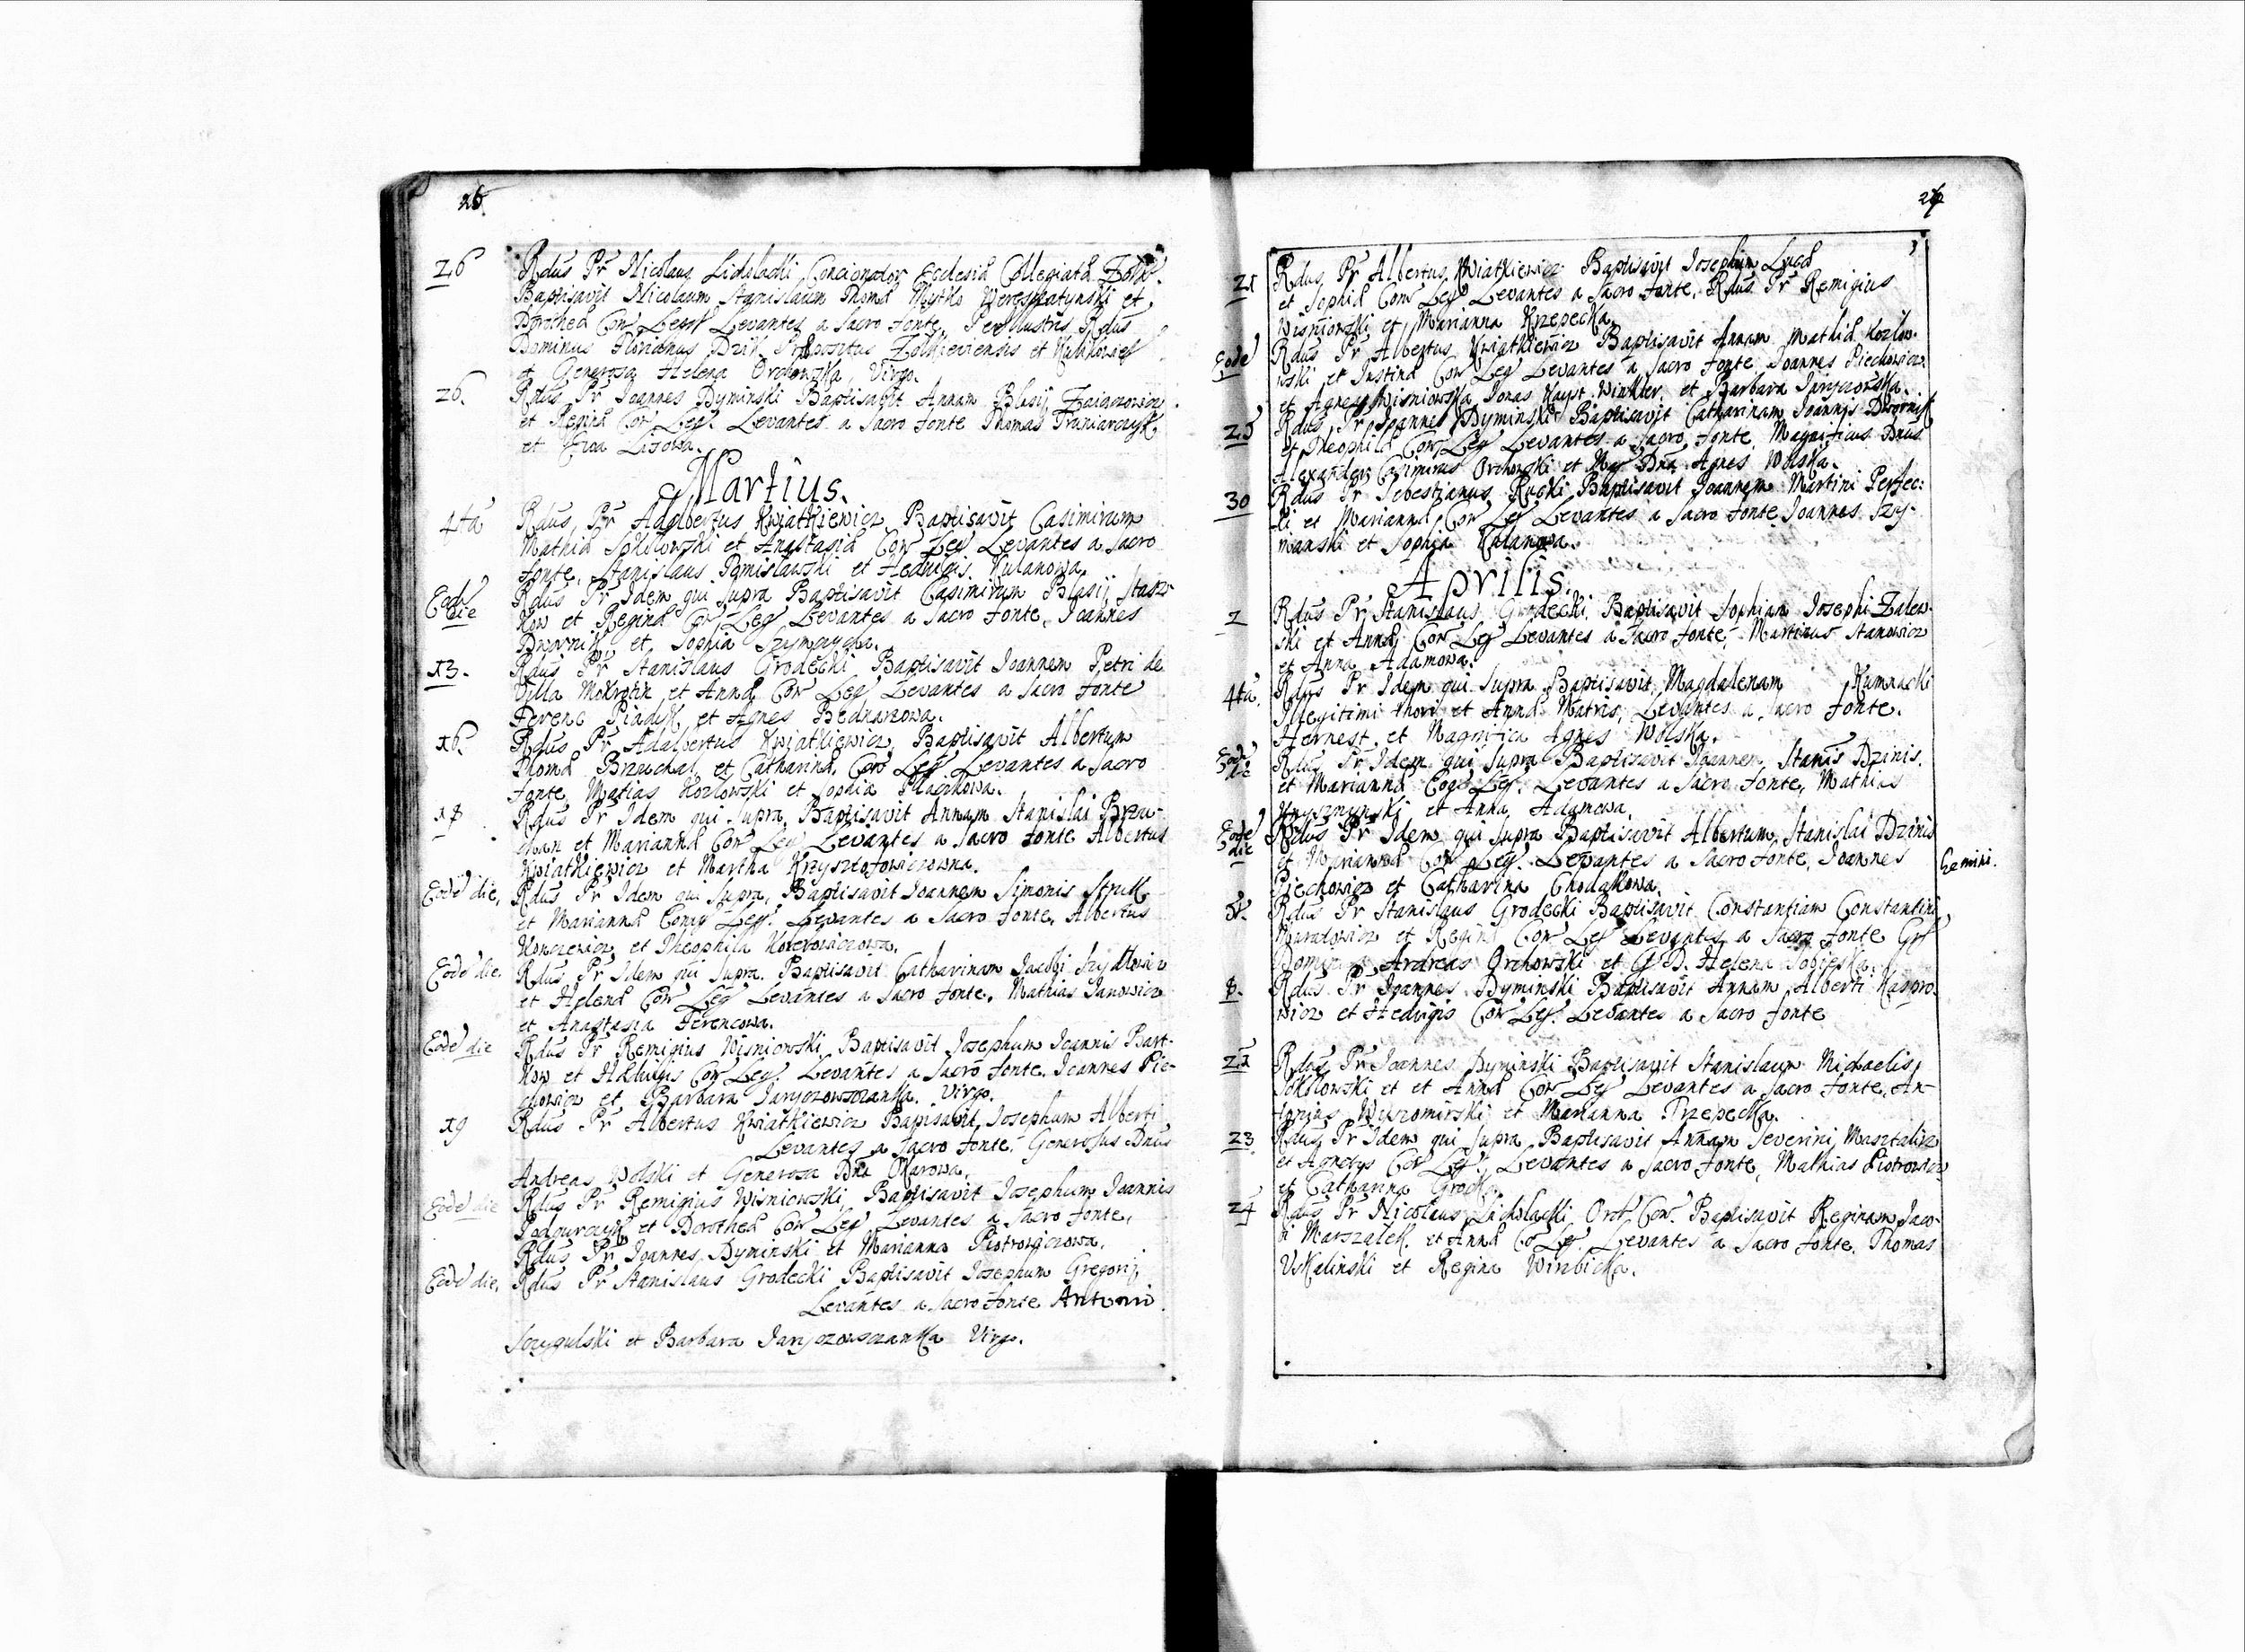 26
26 Rdus Pr Nicolaus Lichslacki Concionator Ecclesiæ Collegiatæ Zolk.
Baptisavit Nicolaum Stanislaum Thomæ Mytko Wereszczatynski et
Dorotheæ Con Legit Levantes a Sacro Fonte, Perillustris Rdus
Dominus Florianus Dzik Præpositus Zolkieviensis et
et Generosa Helena Orchowska, Virgo.
26. Rdus Pr Joannes Dyminski Baptisavit Annam Blasij Zaiaczowicz
et Reginæ Con Leg Levantes a Sacro Fonte Thomas Truniarczyk,
et Ewa Lisowa.
Martius.
4ta Rdus Pr Adalbertus Kwiatkiewicz Baptisavit Casimirum
Mathiæ Sokolowski et Anastasiæ Con Leg Levantes a Sacro
Fonte, Stanislaus Pomislawski et Hedvigis Kulanowa
Eode die Rdus Pr Idem qui Supra Baptisavit Casimirum Blasij Stasz-
kow et Reginæ Con Leg Levantes a Sacro Fonte, Joannes
Dwornik, et Sophia
13. Rdus Pr Stanislaus Grodecki Baptisavit Joannem Petri de
Villa Mokrotin et Annæ Con Leg Levantes a Sacro Fonte
Ferenc Piadyk, et Agnes Bednarzowa.
16. Rdus Pr Adalbertus Kwiatkiewicz, Baptisavit Albertum
Thomæ Brzuchal, et Catharinæ, Con Leg Levantes a Sacro
Fonte, Matias Kozlowski et Sophia
18 Rdus Pr Idem qui Supra, Baptisavit Annam Stanislai Brzu-
chan et Mariannæ Con Leg Levantes a Sacro Fonte Albertus
Kwiatkiewicz et Martha Krzysztofowiczowna.
Eode die, Rdus Pr Idem qui Supra, Baptisavit Joannem Simonis Struk
et Mariannæ Coniug Leg. Levantes a Sacro Fonte, Albertus
Konczewicz, et Theophila
Eode die. Rdus Pr Idem qui Supra. Baptisavit Catharinam Jacobi Szydlowicz
et Helenæ Con Leg Levantes a Sacro Fonte. Mathias Janowicz
et Anastasia Ferencowa.
Eode die Rdus Pr Remigius Wisniowski, Baptisavit Josephum Joannis Bart-
kow et Hedvigis Con Leg. Levantes a Sacro Fonte. Joannes Pie-
chowicz et Barbara Jaryczowszanka. Virgo.
19 Rdus Pr Albertus Kwiatkiewicz Baptisavit Josephum Alberti
Levantes a Sacro Fonte. Generosus Dnus
Andreas Wolski et Generosa Dna Okarowa.
Eode die Rdus Pr Remigius Wisniowski, Baptisavit Josephum Joannis
et Dorotheæ Con Leg Levantes a Sacro Fonte,
Rdus Pr Joannes Dyminski et Marianna Piotrowiczowa.
Eode die, Rdus Pr Stanislaus Grodecki Baptisavit Josephum Gregorij
Levantes a Sacro Fonte Antoni
Szczygulski et Barbara Jaryczowszanka Virgo.
27
21 Rdus Pr Albertus Kwiatkiewicz Baptisavit Josephum Lucæ
et Sophiæ Con Leg Levantes a Sacro Fonte, Rdus Pr Remigius
Wisniowski et Marianna Krzepecka
Eode Rdus Pr Albertus Kwiatkiewicz Baptisavit Annam Mathiæ Kozlow-
wski et Justinæ Con Leg Levantes a Sacro Fonte Joannes Piechowicz
et Agnes Wisniowska Jonas Winkler et Barbara Jaryczowska.
25 Rdus Pr Joannes Dyminski Baptisavit Catharinam Joannis Dwornik
et Theophilæ Con Leg Levantes a Sacro Fonte Magnificus Dnus
Alexander Casimirus Orchowski et Mag Dna Agnes Wolska.
30 Rdus Pr Sebestianus Rucki Baptisavit Joannem Martini Perfec-
ki et Mariannæ Con Leg Levantes a Sacro Fonte Joannes Szy-
manski et Sophia Kalanowa.
Aprilis.
2 Rdus Pr Stanislaus Grodecki, Baptisavit Sophiam Josephi Zalew-
ski et Annæ Con Leg Levantes a Sacro Fonte, Martinus Stanowicz
et Anna Adamowa.
4ta Rdus Pr Idem qui Supra Baptisavit Magdalenam Kumnacki
Illegitimi thori et Annæ Matris, Levantes a Sacro Fonte.
Hernest et Magnifica Agnes Wolska.
Eode die Rdus Pr Idem qui Supra Baptisavit Joannem Stanis Dzinis.
et Mariannæ Con Leg. Levantes a Sacro Fonte, Mathias
et Anna Adamowa.
Eode die Rdus Pr Idem qui Supra Baptisavit Albertum, Stanislai Dzinis
et Mariannæ Con Leg. Levantes a Sacro Fonte, Joannes
Piechowicz et Catharina Chodakowa.
Gemini.
5. Rdus Pr Stanislaus Grodecki Baptisavit Constantiam Constantini
et Reginæ Con Leg Levantes a Sacro Fonte
Andreas Orchowski et G.D. Helena Sobieska.
8. Rdus Pr Joannes Dyminski Baptisavit Annam Alberti Kaspro-
wicz et Hedvigis Con Leg. Levantes a Sacro Fonte
21 Rdus Pr Joannes Dyminski Baptisavit Stanislaum Michaelis
Sokolowski et et Annæ Con Leg Levantes a Sacro Fonte, An-
tonius Wyszomirski et Marianna Trzepecka.
23 Rdus Pr Idem qui Supra Baptisavit Annam Severini Masztalirz
et Agnetis Con Leg. Levantes a Sacro Fonte, Mathias Piotrowicz
et Catharina
24 Rdus Pr Nicolaus Lichslacki Ord Con. Baptisavit Reginam Jaco-
bi Marszalek et Annæ Co Leg. Levantes a Sacro Fonte. Thomas
Uskalinski et Regina Wirzbicka.